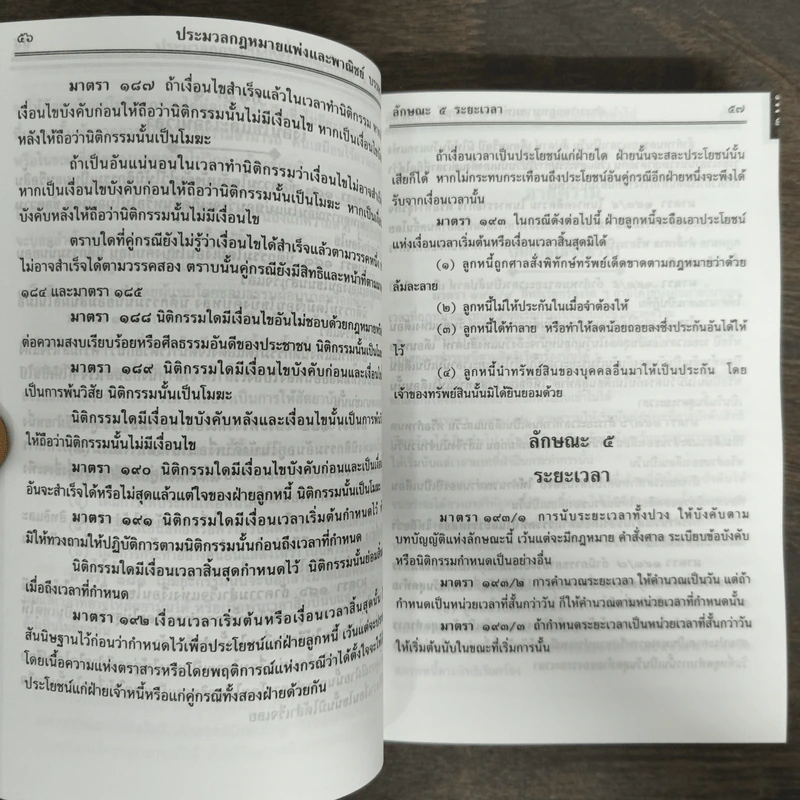 ๕๖ ประมวลกฎหมายแพ่งและพาณิชย์
มาตรา ๑๘๗ ถ้าเงื่อนไขสำเร็จแล้วในเวลาทำนิติกรรม
เงื่อนไขบังคับก่อนให้ถือว่านิติกรรมนั้นไม่มีเงื่อนไข หากเป็นเงื่อนไข
หลังให้ถือว่านิติกรรมนั้นเป็นโมฆะ
ถ้าเป็นอันแน่นอนในเวลาทำนิติกรรมว่าเงื่อนไขไม่อาจ
หากเป็นเงื่อนไขบังคับก่อนให้ถือว่านิติกรรมนั้นเป็นโมฆะ หากเป็น
บังคับหลังให้ถือว่านิติกรรมนั้นไม่มีเงื่อนไข
ตราบใดที่คู่กรณียังไม่รู้ว่าเงื่อนไขได้สำเร็จแล้วตามวรรคหนึ่ง
ไม่อาจสำเร็จได้ตามวรรคสอง ตราบนั้นคู่กรณียังมีสิทธิและหน้าที่ตาม
๑๘๔ และมาตรา ๑๘๕
มาตรา ๑๘๘ นิติกรรมใดมีเงื่อนไขอันไม่ชอบด้วยกฎหมาย
ต่อความสงบเรียบร้อยหรือศีลธรรมอันดีของประชาชน นิติกรรมนั้นเป็น
มาตรา ๑๘๙ นิติกรรมใดมีเงื่อนไขบังคับก่อนและเงื่อนไข
เป็นการพ้นวิสัย นิติกรรมนั้นเป็นโมฆะ
นิติกรรมใดมีเงื่อนไขบังคับหลังและเงื่อนไขนั้นเป็นการ
ให้ถือว่านิติกรรมนั้นไม่มีเงื่อนไข
มาตรา ๑๙๐ นิติกรรมใดมีเงื่อนไขบังคับก่อนและเป็น
อันจะสำเร็จได้หรือไม่สุดแล้วแต่ใจของฝ่ายลูกหนี้ นิติกรรมนั้นเป็นโมฆะ
มาตรา ๑๙๑ นิติกรรมใดมีเงื่อนเวลาเริ่มต้นกำหนดไว้
มิให้ทวงถามให้ปฏิบัติการตามนิติกรรมนั้นก่อนถึงเวลาที่กำหนด
นิติกรรมใดมีเงื่อนเวลาสิ้นสุดกำหนดไว้ นิติกรรมนั้นย่อม
เมื่อถึงเวลาที่กำหนด
มาตรา ๑๙๒ เงื่อนเวลาเริ่มต้นหรือเงื่อนเวลาสิ้นสุดนั้น
สันนิษฐานไว้ก่อนว่ากำหนดไว้เพื่อประโยชน์แก่ฝ่ายลูกหนี้ เว้นแต่จะ
โดยเนื้อความแห่งตราสารหรือโดยพฤติการณ์แห่งกรณีว่าได้ตั้งใจจะ
ประโยชน์แก่ฝ่ายเจ้าหนี้หรือแก่คู่กรณีทั้งสองฝ่ายด้วยกัน
ลักษณะ ๕ ระยะเวลา ๕๗
ถ้าเงื่อนเวลาเป็นประโยชน์แก่ฝ่ายใด ฝ่ายนั้นจะสละประโยชน์นั้น
เสียก็ได้ หากไม่กระทบกระเทือนถึงประโยชน์อันคู่กรณีอีกฝ่ายหนึ่งจะพึงได้
รับจากเงื่อนเวลานั้น
มาตรา ๑๙๓ ในกรณีดังต่อไปนี้ ฝ่ายลูกหนี้จะถือเอาประโยชน์
แห่งเงื่อนเวลาเริ่มต้นหรือเงื่อนเวลาสิ้นสุดมิได้
(๑) ลูกหนี้ถูกศาลสั่งพิทักษ์ทรัพย์เด็ดขาดตามกฎหมายว่าด้วย
ล้มละลาย
(๒) ลูกหนี้ไม่ให้ประกันในเมื่อจำต้องให้
(๓) ลูกหนี้ได้ทำลาย หรือทำให้ลดน้อยถอยลงซึ่งประกันอันได้ให้
ไว้
(๔) ลูกหนี้นำทรัพย์สินของบุคคลอื่นมาให้เป็นประกัน โดย
เจ้าของทรัพย์สินนั้นมิได้ยินยอมด้วย
ลักษณะ ๕
ระยะเวลา
มาตรา ๑๙๓/๑ การนับระยะเวลาทั้งปวง ให้บังคับตาม
บทบัญญัติแห่งลักษณะนี้ เว้นแต่จะมีกฎหมาย คำสั่งศาล ระเบียบข้อบังคับ
หรือนิติกรรมกำหนดเป็นอย่างอื่น
มาตรา ๑๙๓/๒ การคำนวณระยะเวลา ให้คำนวณเป็นวัน แต่ถ้า
กำหนดเป็นหน่วยเวลาที่สั้นกว่าวัน ก็ให้คำนวณตามหน่วยเวลาที่กำหนดนั้น
มาตรา ๑๙๓/๓ ถ้ากำหนดระยะเวลาเป็นหน่วยเวลาที่สั้นกว่าวัน
ให้เริ่มต้นนับในขณะที่เริ่มการนั้น